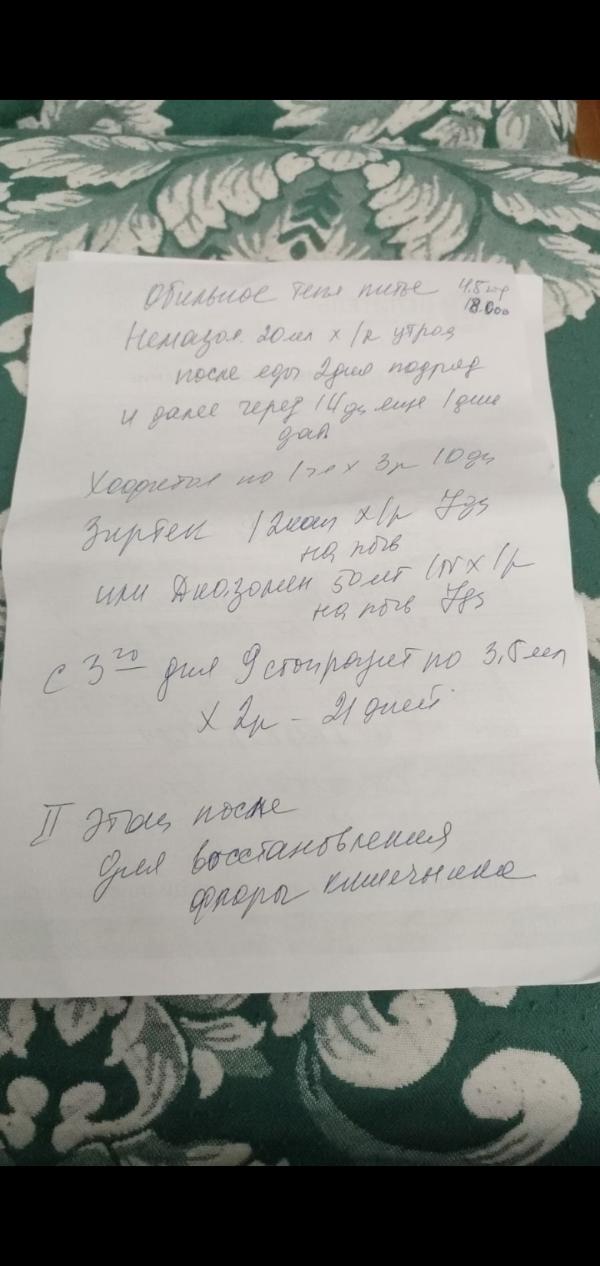 Обильное тепл питье
18.000
Немазол 20мл х 1р утром
после еды 2дня подряд
и далее через 14дн еще 1 день
дать
по 1 чл х 3р 10дн
Зиртек 12кап х 1р 7дн
на ночь
или 50мг 1т х 1р
на ночь 7дн
с 3го дня по 3,5мл
х 2р - 21 дней
II этап после
для восстановления
флоры кишечника